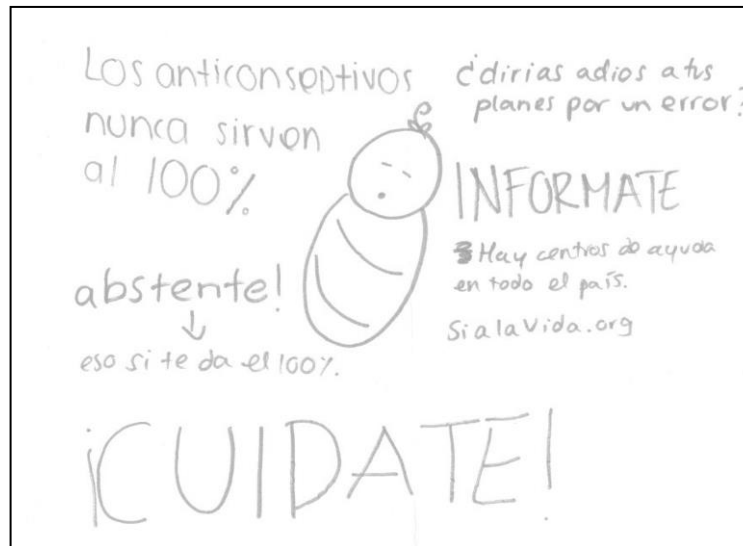 Los anticonseptivos
nunca sirven
al 100%
abstente!
eso si te da el 100%.
¿dirias adios a tus
planes por un error?
INFORMATE
Hay centros de ayuda
en todo el país.
SialaVida.org
¡CUIDATE!